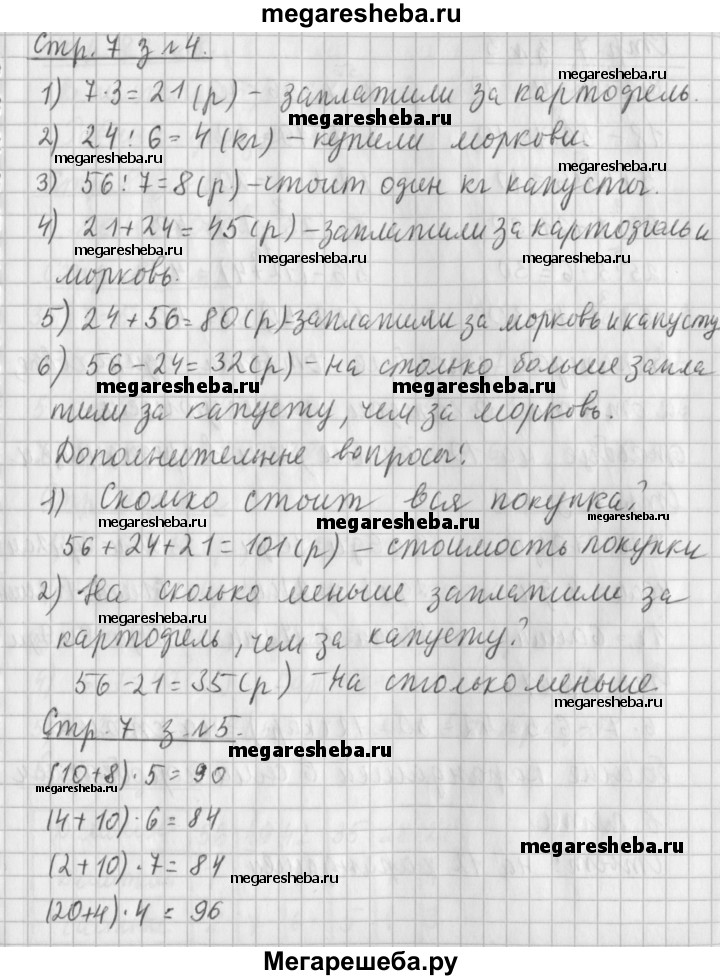 megaresheba.ru
Стр. 7 з №4.
megaresheba.ru
1) 7·3=21(р) - заплатили за картофель.
megaresheba.ru
2) 24:6=4(кг) - купили моркови.
megaresheba.ru megaresheba.ru
3) 56:7=8(р) - стоит один кг капусты.
4) 21+24=45(р) - заплатили за картофель и
megaresheba.ru megaresheba.ru
морковь.
5) 24+56=80(р) - заплатили за морковь и капусту
6) 56-24=32(р) - на столько больше запла
megaresheba.ru megaresheba.ru
тили за капусту, чем за морковь.
Дополнительные вопросы:
1) Сколько стоит вся покупка?
megaresheba.ru megaresheba.ru
56+24+21=101(р) - стоимость покупки
2) На сколько меньше заплатили за
megaresheba.ru
картофель, чем за капусту?
56-21=35(р) - на столько меньше.
megaresheba.ru
Стр. 7 з №5.
megaresheba.ru
(10+8)·5=90
megaresheba.ru
(4+10)·6=84
megaresheba.ru
(2+10)·7=84
megaresheba.ru
(20+4)·4=96
Мегарешеба.ру